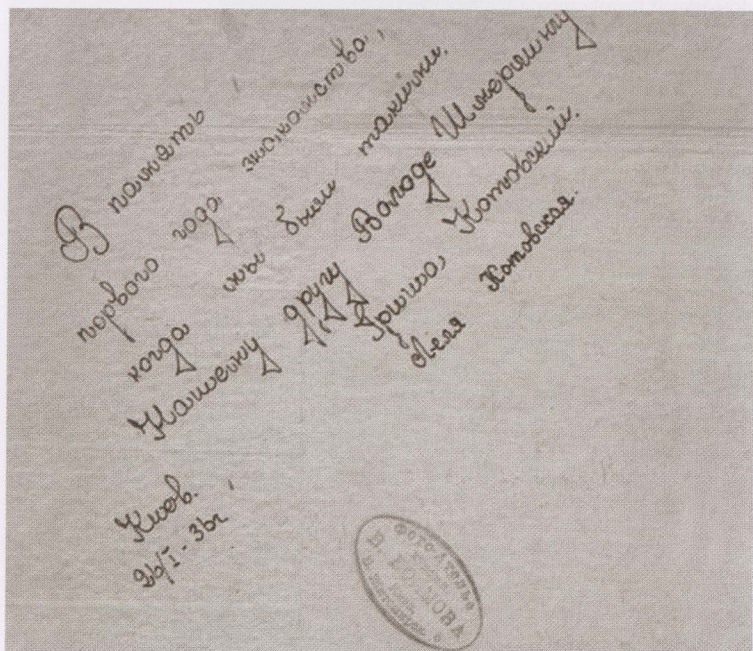 В память
первого года знакомства,
когда мы были такими.
Нашему другу Володе Шмерлингу
Гриша Котовский.
Леля Котовская.
Киев.
26/I-36г
Фото-Ателье
В.
Киев